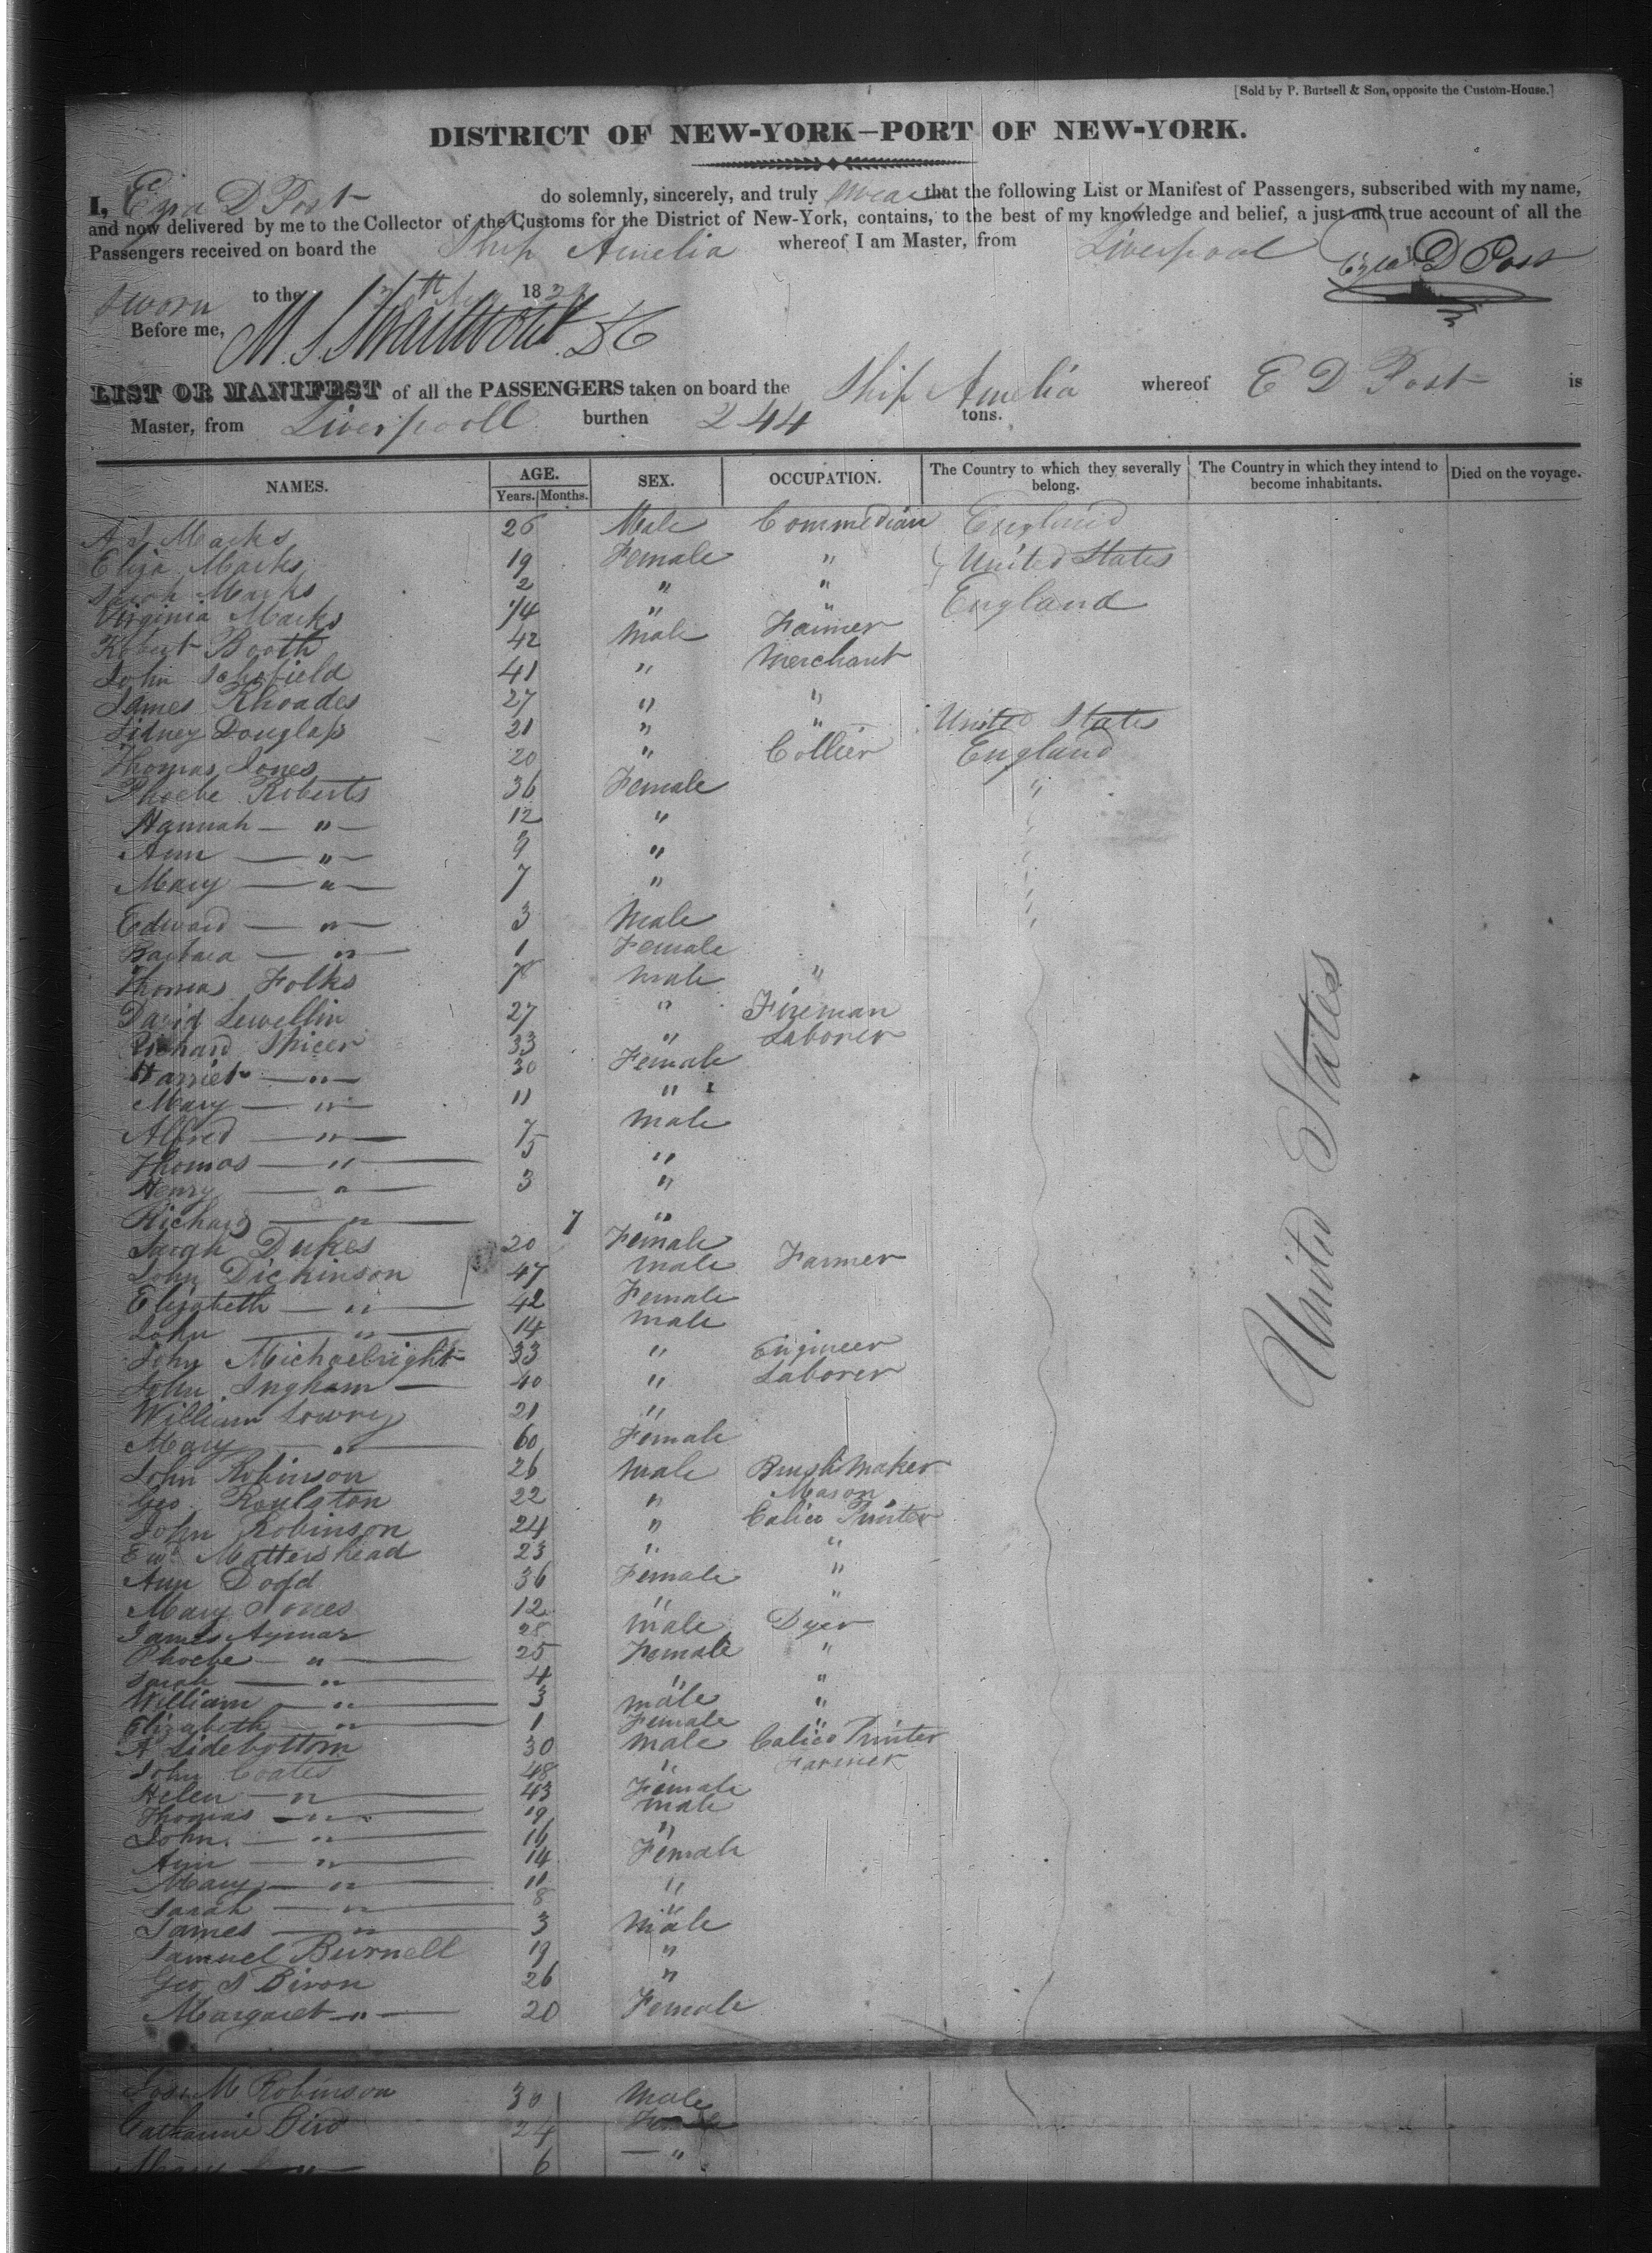 [Sold by P. Burtsell & Son, opposite the Custom-House.]
DISTRICT OF NEW-YORK—PORT OF NEW-YORK.
I, Ezra D Post do solemnly, sincerely, and truly swear that the following List or Manifest of Passengers, subscribed with my name,
and now delivered by me to the Collector of the Customs for the District of New-York, contains, to the best of my knowledge and belief, a just and true account of all the
Passengers received on board the Ship Amelia whereof I am Master, from Liverpool Ezra D Post
Sworn to the 18
Before me,
LIST OR MANIFEST of all the PASSENGERS taken on board the Ship Amelia whereof E D Post is
Master, from Liverpoll burthen 244 tons.
NAMES. AGE. Years. Months. SEX. OCCUPATION. The Country to which they severally belong. The Country in which they intend to become inhabitants. Died on the voyage.
Marks 26 Male Commedian England
Eliza Marks 19 Female " United States
Sarah Marks 2 " "
Virginia Marks 1/4 " " England
Robert Booth 42 Male Farmer
John Schofield 41 " Merchant
James Rhoades 27 " "
Sidney Douglass 21 " " United States
Thomas Jones 20 " Collier England
Phoebe Roberts 36 Female "
Hannah — " — 12 "
Ann — " — 9 "
Mary — " — 7 "
Edward — " — 3 Male
Barbara — " — 1 Female
Thomas Folks male "
David Lewellin 27 " Fireman
Richard Spicer 33 " Laborer
Harriet — " — 30 Female
Mary — " — 11 "
Alfred — " — 7 male
Thomas — " — 5 "
Henry — " — 3 "
Richard — " — 7 "
Sarah Dukes 20 Female
John Dickinson 47 male Farmer
Elizabeth — " — 42 Female
John — " — 14 male
John Michaelright 33 " Engineer
John Ingham — 40 " Laborer
William Lowry 21 "
Mary — " — 60 Female
John Robinson 26 male Brush maker
Geo. Roulston 22 " Mason
John Robinson 24 " Calico Printer
Edwd Mattershead 23 " "
Ann Dodd 36 Female "
Mary Jones 12 " "
James Aymar 28 male Dyer
Phoebe — " — 25 Female "
Sarah — " — 4 " "
William — " — 3 male "
Elizabeth — " — 1 Female "
A Sidebottom 30 male Calico Printer
John Coates 48 " Farmer
Helen — " — 43 Female
Thomas — " — 19 male
John — " — 16 "
Ann — " — 14 Female
Mary — " — 11 "
Sarah — " — 8 "
James — " — 3 male
Samuel Burnell 19 "
Geo S Biron 26 "
Margaret — " — 20 Female
United States
M Robinson 30 male
Catharine Bird 24
Mary — " — 6 — "